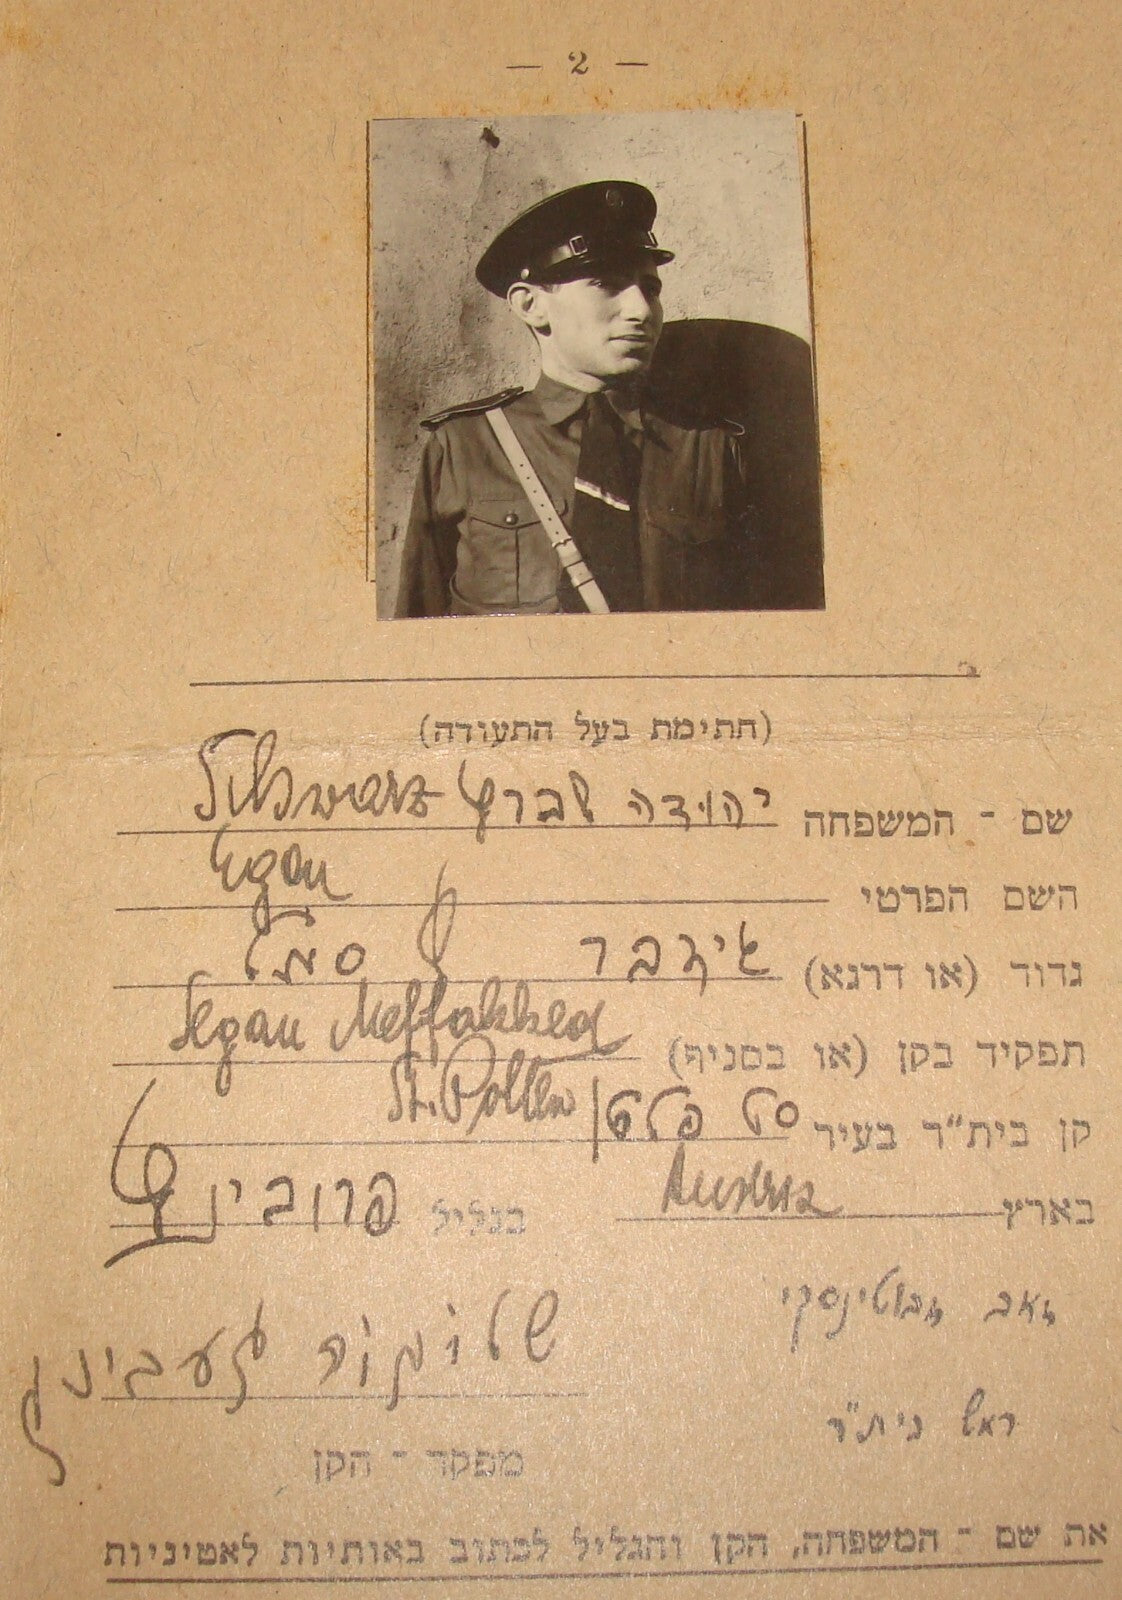 — 2 —
(חתימת בעל התעודה)
שם - המשפחה יהודה שברץ Schwarz
השם הפרטי Egon
גדוד (או דרגא)
תפקיד בקן (או בסניף) Segan Meffakked
קן בית"ר בעיר סט פלטן St. Pölten
בארץ Austria בגליל פרובינץ
זאב זבוטינסקי
שלומה
ראש בית"ר
מפקד - הקן
את שם - המשפחה, הקן והגליל לכתוב באותיות לאטיניות